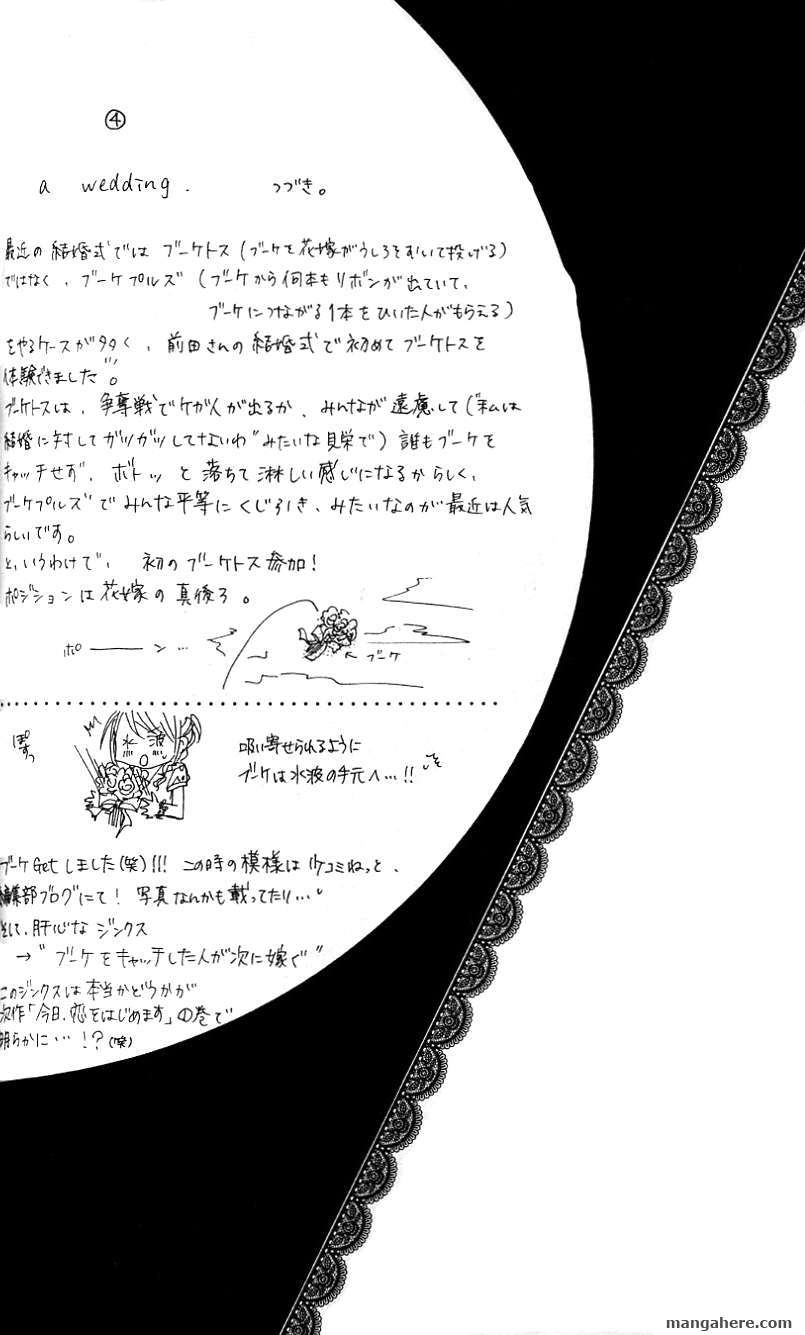 ④
a wedding. つづき。
最近の結婚式では ブーケトス (ブーケを花嫁がうしろをむいて投げる)
ではなく、ブーケプルズ (ブーケから何本もリボンが出ていて、
ブーケにつながる1本をひいた人がもらえる)
をやるケースが多く、前田さんの結婚式で初めてブーケトスを
体験できました。
ブーケトスは、争奪戦でケガ人が出るか、みんなが遠慮して("私は
結婚に対してガツガツしてないわ"みたいな見栄で) 誰もブーケを
キャッチせず、ボトッ と落ちて淋しい感じになるからしく、
ブーケプルズでみんな平等にくじ引き、みたいなのが最近は人気
らしいです。
と、いうわけで、初のブーケトス参加!
ポジションは花嫁の真後ろ。
ポ―――ン…
← ブーケ
ぽすっ
水波
吸い寄せられるように
ブーケは水波の手元へ…!!
ブーケGetしました(笑)!!! この時の模様は
編集部ブログにて! 写真なんかも載ってたり…
そして、肝心なジンクス
→"ブーケをキャッチした人が次に嫁ぐ"
このジンクスは本当かどうかが
次作「今日、恋をはじめます」①巻で
明らかに…!?(笑)
mangahere.com